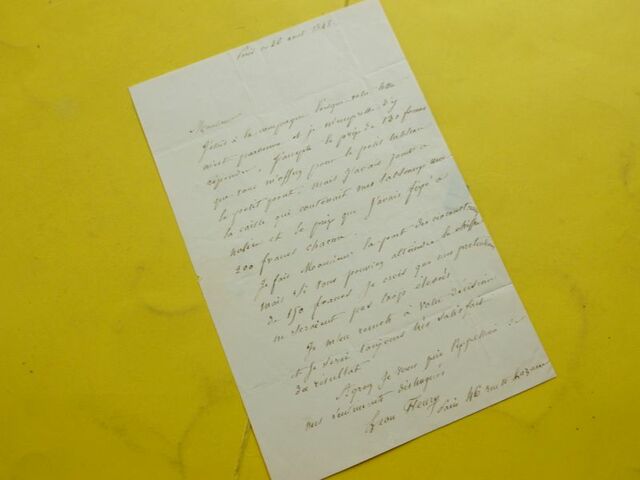 Paris ce 26 aout 1848.
Monsieur
J'étais à la campagne lorsque votre lettre
m'est parvenue et je m'empresse d'y
répondre. J'accepte le prix de 130 francs
que vous m'offrez pour le petit tableau
le petit pont. mais j'avais joint à
la caisse qui contenait mes tableaux une
notice et le prix que j'avais fixé à
200 francs chacun.
Je fais Monsieur la part des circonstances
mais si vous pouviez atteindre le chiffre
de 150 francs, je crois que mes prétentions
ne seraient pas trop élevées
Je m'en remets à votre décision
et je serai toujours très satisfait
du résultat
Agréez je vous prie l'expression de
mes sentiments distingués
Leon Fleury
Paris 46 rue St Lazare